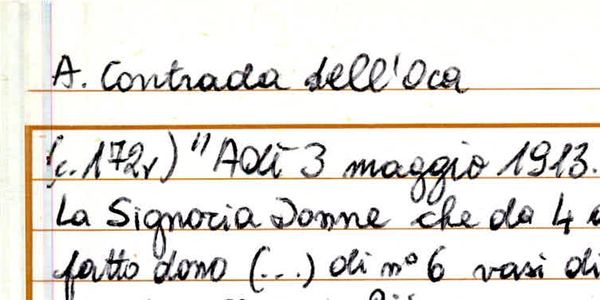 A. Contrada dell'Oca
(c. 172r) "Adì 3 maggio 1913.
La Signoria Donne che da 4
fatto dono (...) di n° 6 vasi di